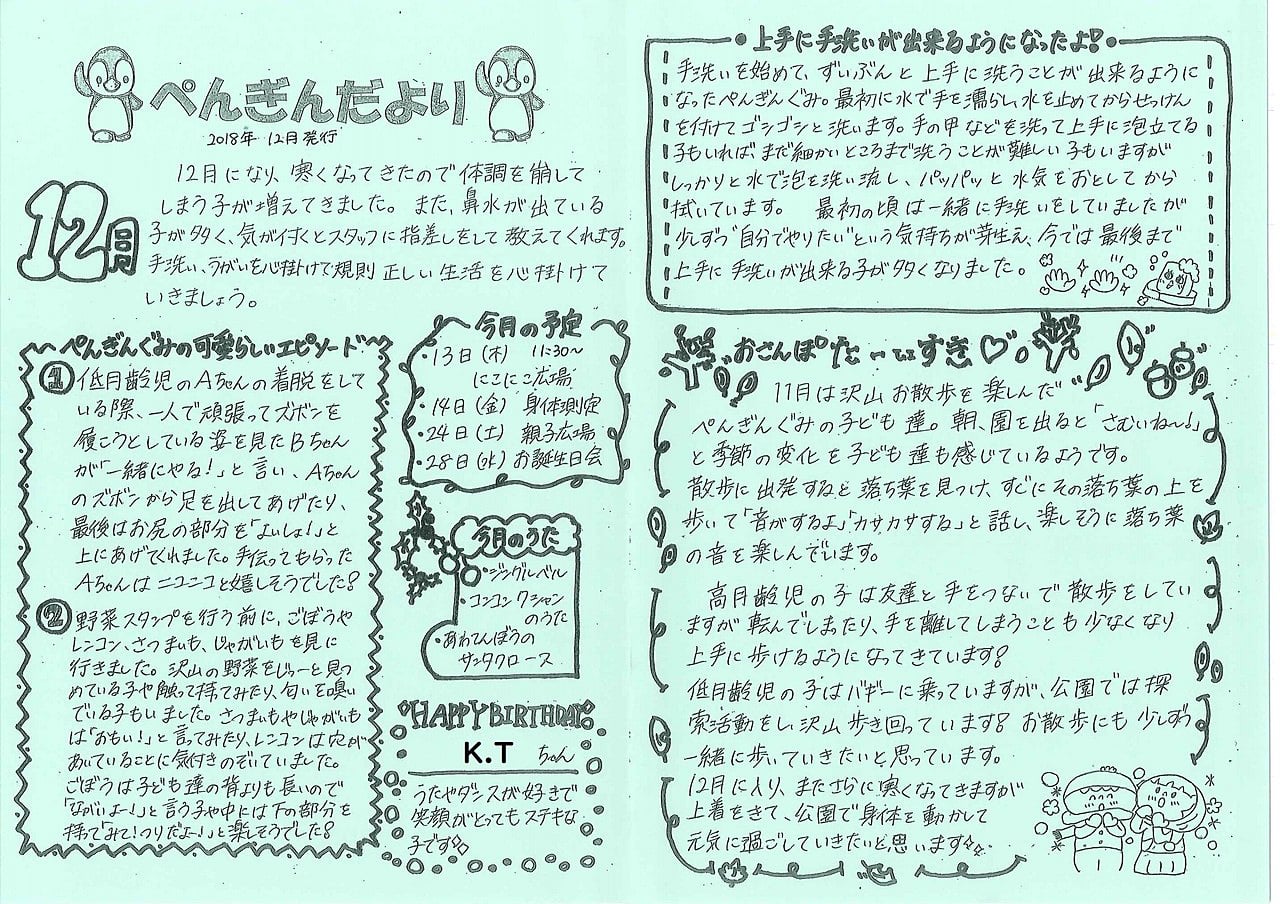 ぺんぎんだより
2018年 12月発行
12月
12月になり、寒くなってきたので体調を崩して
しまう子が増えてきました。また、鼻水が出ている
子が多く、気が付くとスタッフに指差しをして教えてくれます。
手洗い、うがいを心掛けて規則正しい生活を心掛けて
いきましょう。
ぺんぎんぐみの可愛らしいエピソード
① 低月齢児のAちゃんの着脱をして
いる際、一人で頑張ってズボンを
履こうとしている姿を見たBちゃん
が「一緒にやる!」と言い、Aちゃん
のズボンから足を出してあげたり、
最後はお尻の部分を「よいしょ!」と
上にあげてくれました。手伝ってもらった
Aちゃんはニコニコと嬉しそうでした!
② 野菜スタンプを行う前に、ごぼうや
レンコン、さつまいも、じゃがいもを見に
行きました。沢山の野菜をじっーと見つ
めている子や触って持ってみたり、匂いを嗅い
でいる子もいました。さつまいもやじゃがいも
は「おもい!」と言ってみたり、レンコンは穴が
あいていることに気付きのぞいていました。
ごぼうは子ども達の背よりも長いので
「ながいよー!」と言う子や中には下の部分を
持って「みて!つりだよー!」と楽しそうでした!
今月の予定
・13日(木) 11:30〜
にこにこ広場
・14日(金) 身体測定
・24日(土) 親子広場
・28日(水) お誕生日会
今月のうた
・ジングルベル
・コンコンクシャン
のうた
・あわてんぼうの
サンタクロース
HAPPY BIRTHDAY
K.T ちゃん
うたやダンスが好きで
笑顔がとってもステキな
子です
上手に手洗いが出来るようになったよ!
手洗いを始めて、ずいぶんと上手に洗うことが出来るように
なったぺんぎんぐみ。最初に水で手を濡らし、水を止めてからせっけん
を付けてゴシゴシと洗います。手の甲などを洗って上手に泡立てる
子もいれば、まだ細かいところまで洗うことが難しい子もいますが
しっかりと水で泡を洗い流し、パッパッと水気をおとしてから
拭いています。 最初の頃は一緒に手洗いをしていましたが
少しずつ"自分でやりたい"という気持ちが芽生え、今では最後まで
上手に手洗いが出来る子が多くなりました。
おさんぽだーいすき♡。
11月は沢山お散歩を楽しんだ
ぺんぎんぐみの子ども達。朝、園を出ると「さむいね〜!」
と季節の変化を子ども達も感じているようです。
散歩に出発すると落ち葉を見つけ、すぐにその落ち葉の上を
歩いて「音がするよ」「カサカサする」と話し、楽しそうに落ち葉
の音を楽しんでいます。
高月齢児の子は友達と手をつないで散歩をしてい
ますが転んでしまったり、手を離してしまうことも少なくなり
上手に歩けるようになってきています!
低月齢児の子はバギーに乗っていますが、公園では探
索活動をし、沢山歩き回っています! お散歩にも少しずつ
一緒に歩いていきたいと思っています。
12月に入り、またさらに寒くなってきますが
上着をきて、公園で身体を動かして
元気に過ごしていきたいと思います